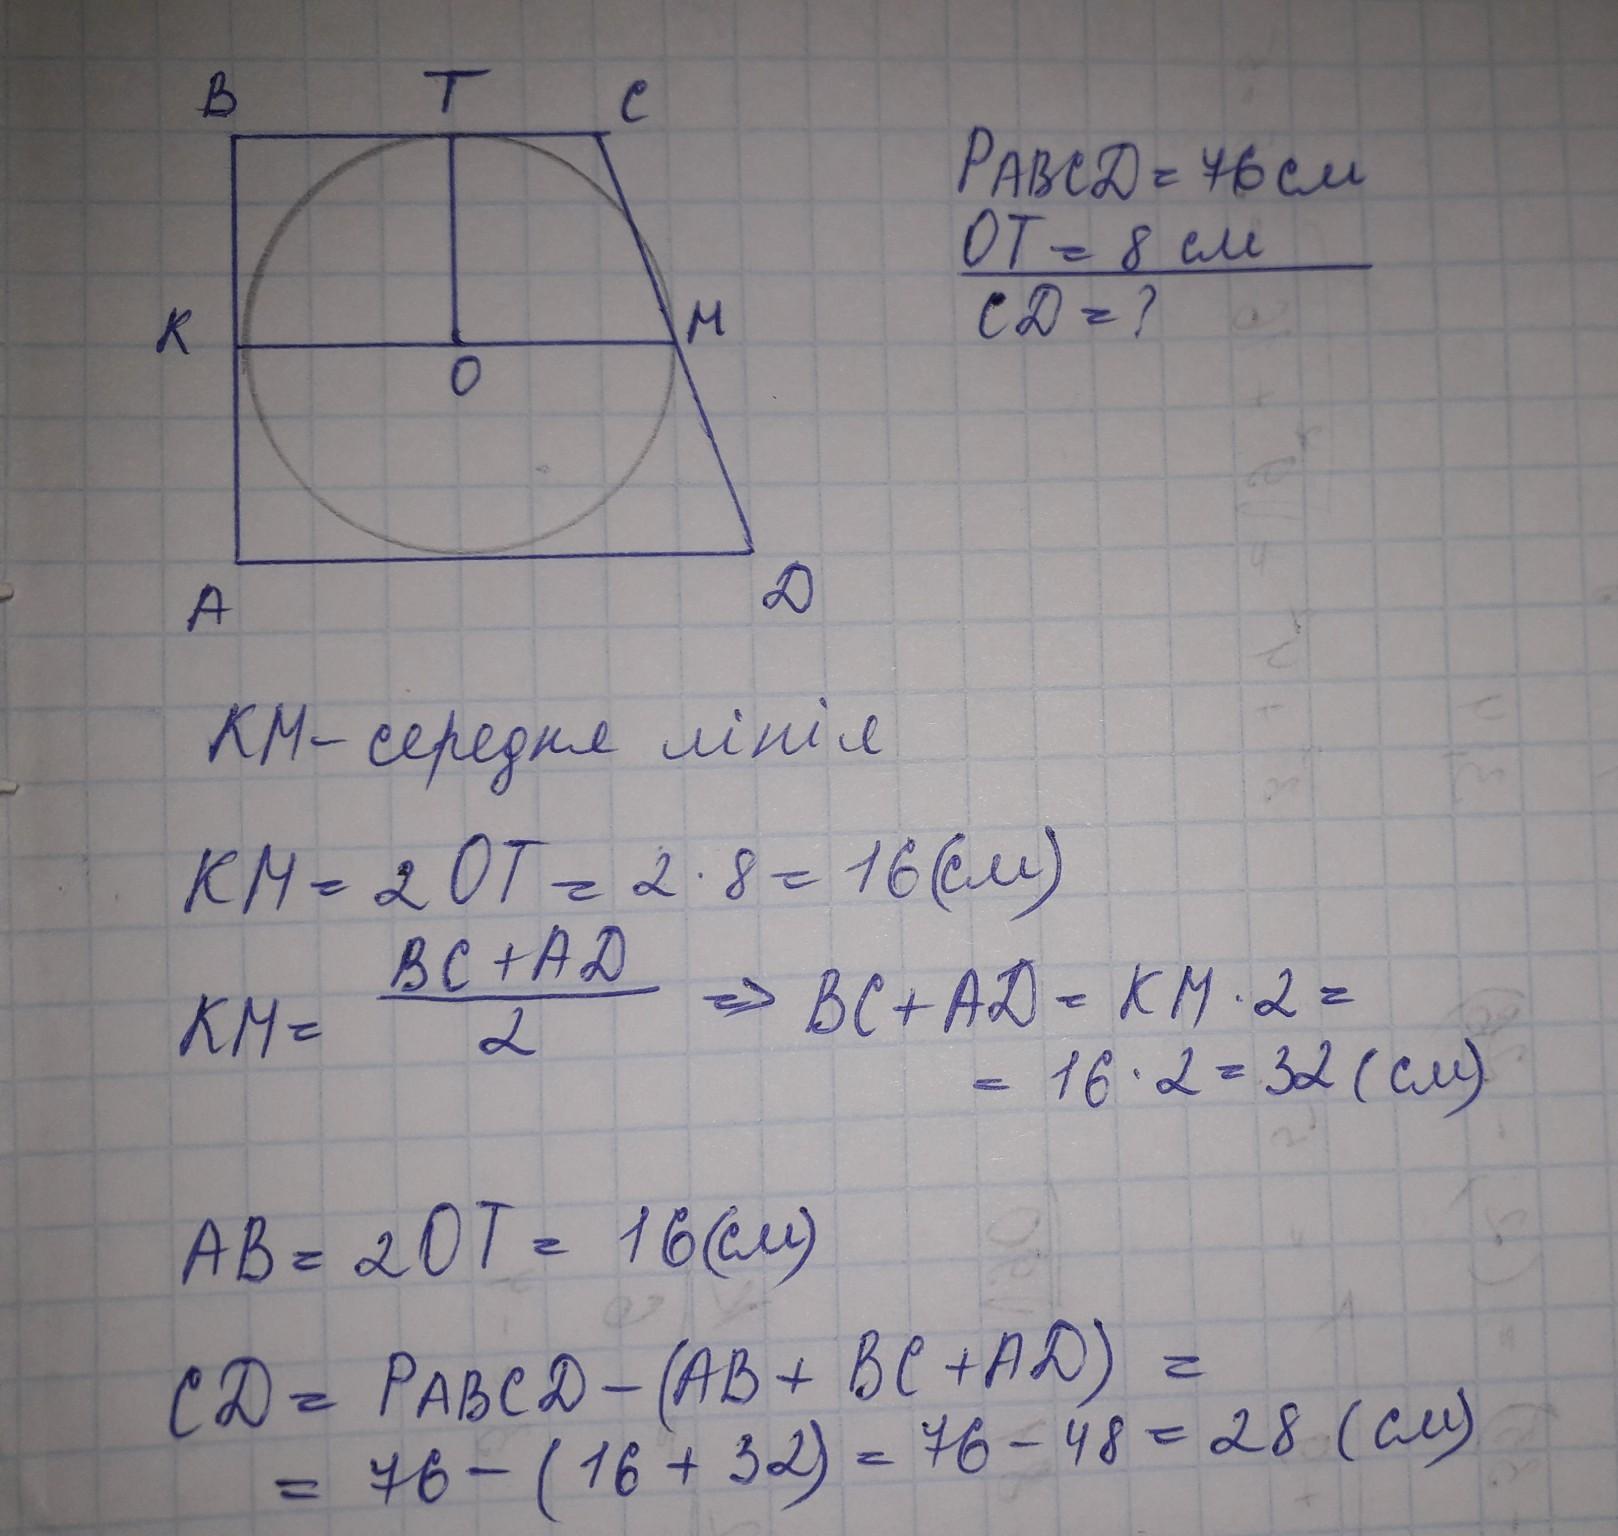 B T C
K M
O
A D
PABCD = 76 см
OT = 8 см
CD = ?
KM - середня лінія
KM = 2OT = 2 · 8 = 16 (см)
KM = BC + AD / 2 => BC + AD = KM · 2 =
= 16 · 2 = 32 (см)
AB = 2OT = 16 (см)
CD = PABCD - (AB + BC + AD) =
= 76 - (16 + 32) = 76 - 48 = 28 (см)